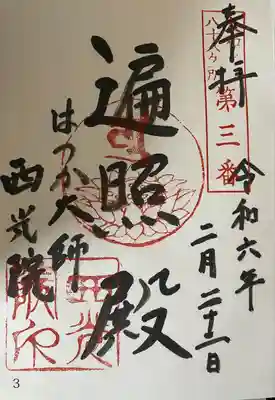 奉拝
八十八ヶ所
第三番
令和六年
二月二十一日
遍照殿
はつか大師
西光院
3